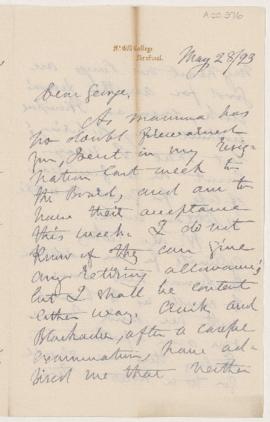 McGill College
Montreal.
May 28/93
Dear George,
As mamma has
no doubt
you, sent in my resig-
nation last week to
the Board, and am to
have their acceptance
this week. I do not
know if they can give
any retiring allowance
but I shall be content
either way. and
Blackader, after a careful
examination, have ad-
vised me that neither